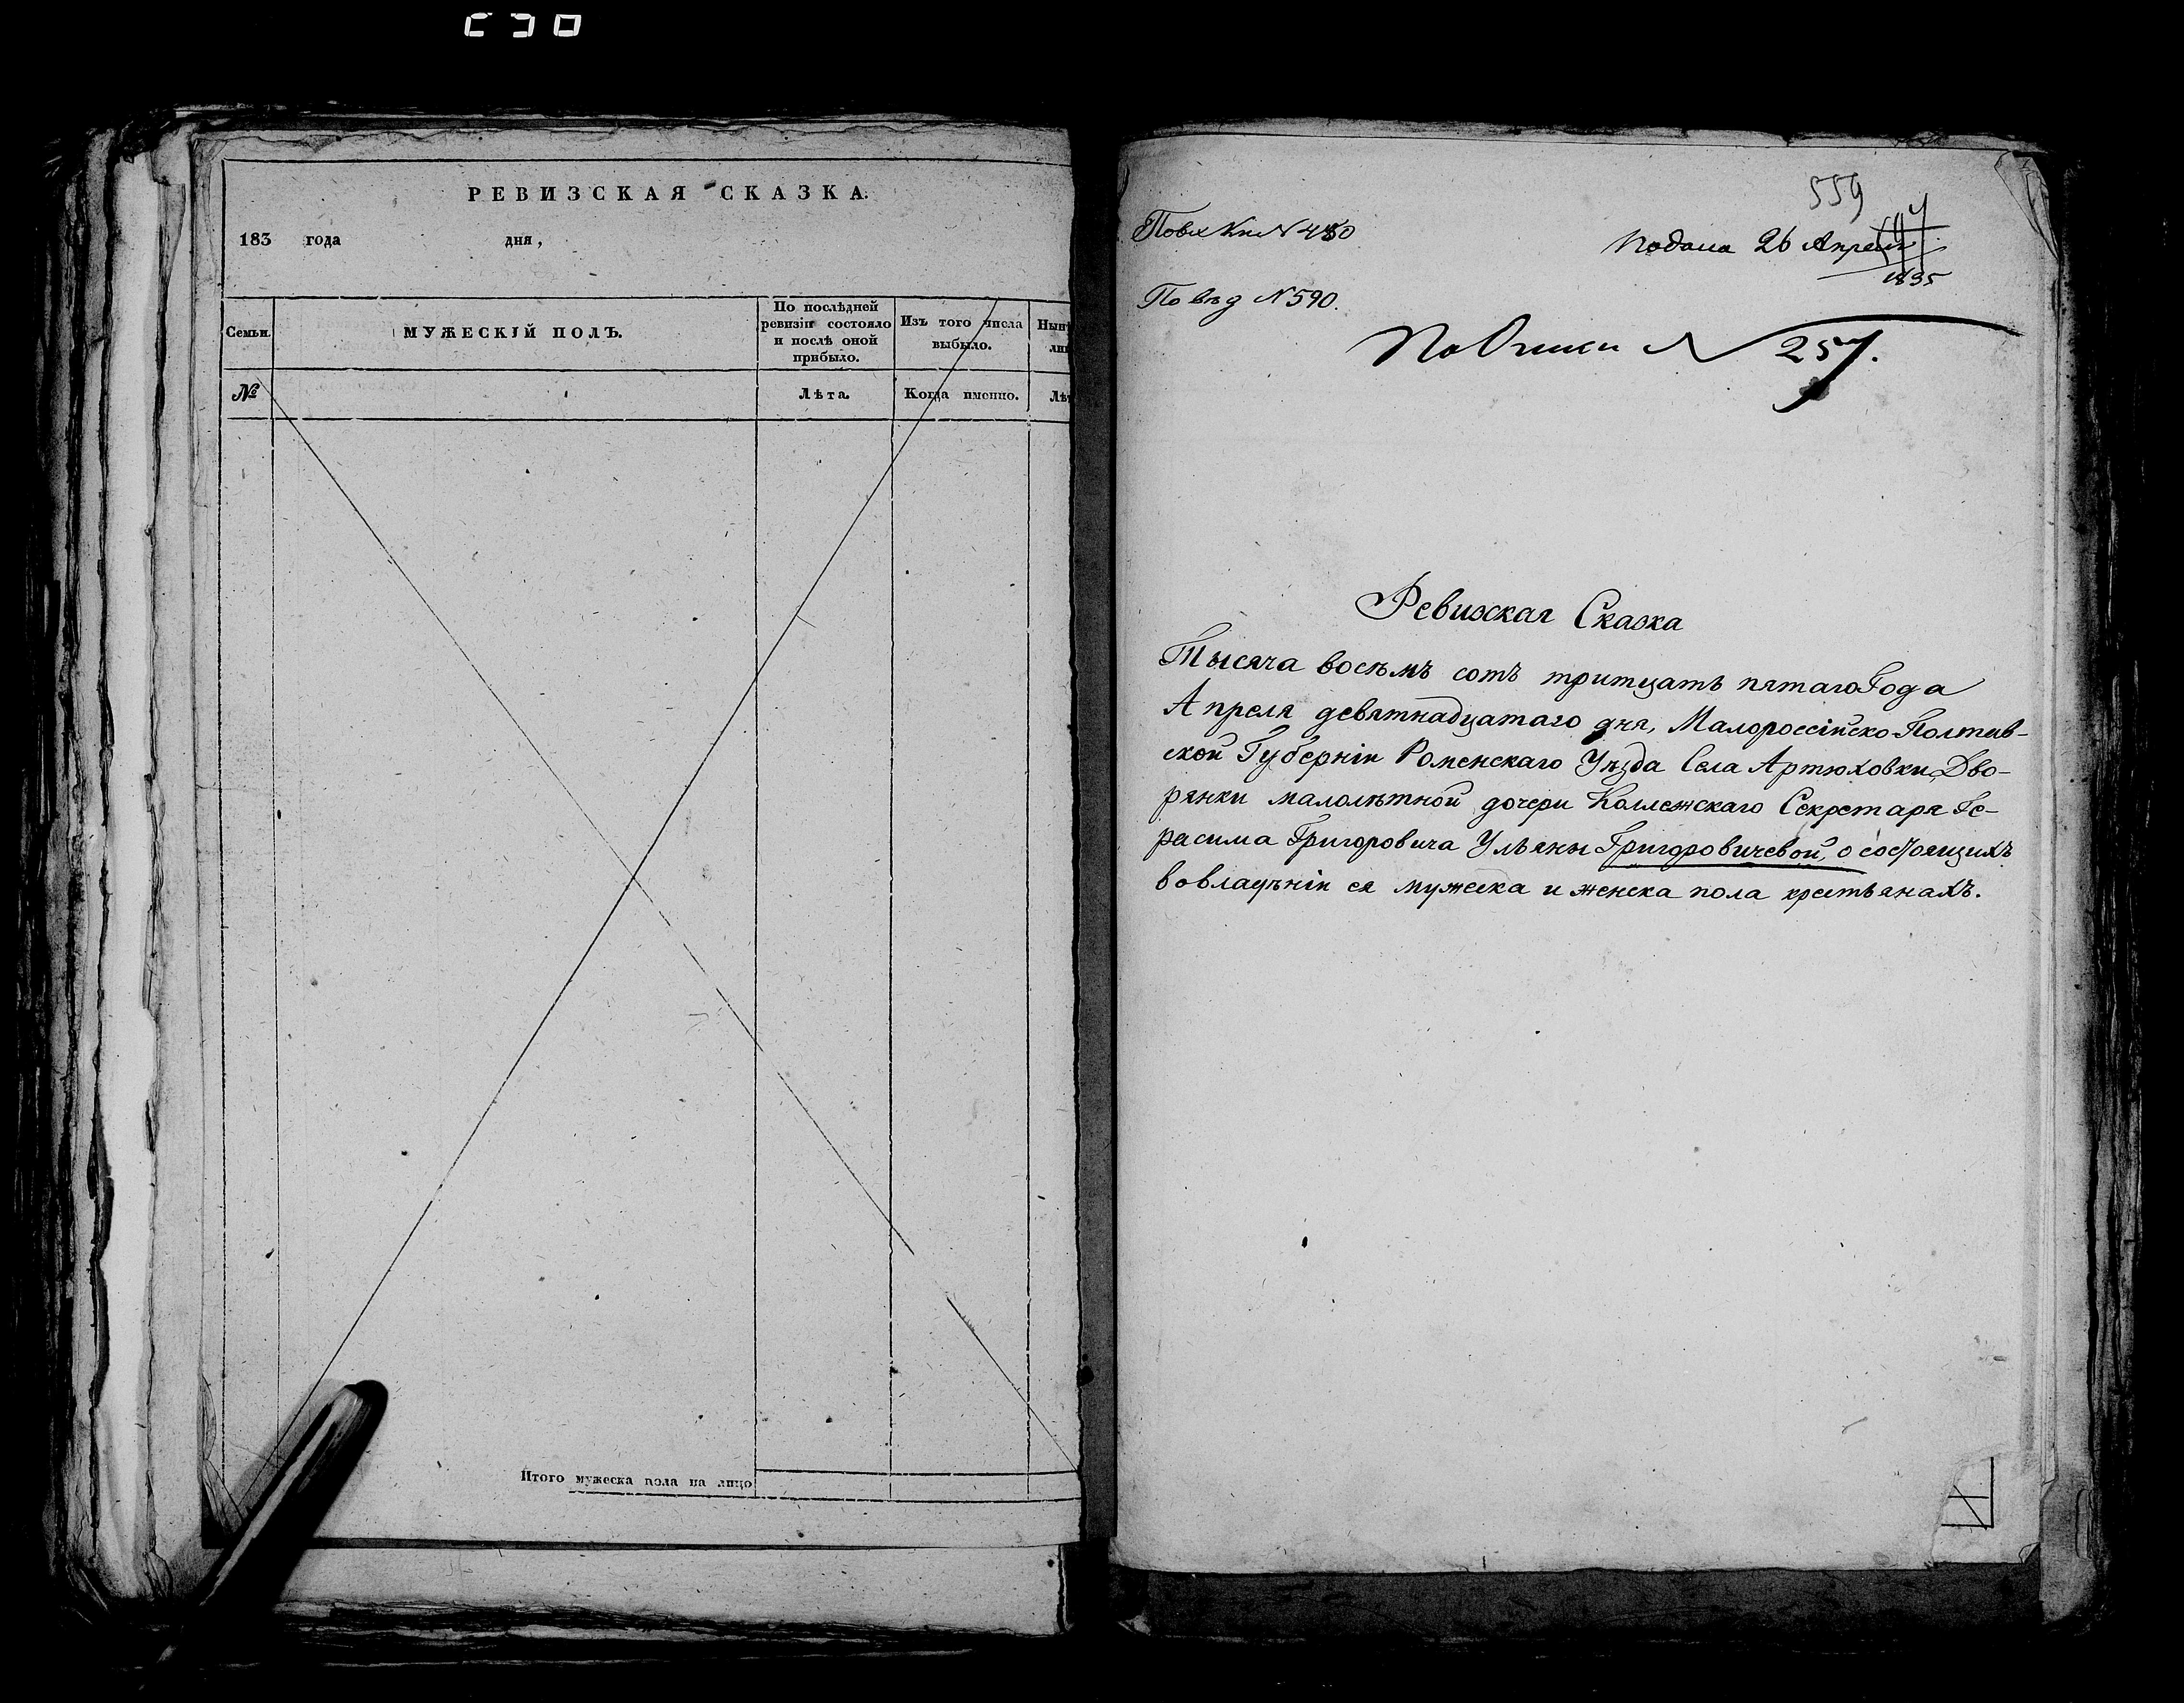 РЕВИЗСКАЯ СКАЗКА.
183 года дня,
Семьи.
МУЖЕСКІЙ ПОЛЪ.
По послѣдней
ревизіи состояло
и послѣ оной
прибыло.
Изъ того числа
выбыло.
№
Лѣта.
Когда именно.
Итого мужеска пола на лицо
559
Подана 26 Апреля
1835
По вх Кн N 480
По вѣд N 590.
По Описи N 257.
Ревизская Сказка
Тысяча восѣмъ сотъ тритцать пятаго Года
Апреля девятнадцатаго дня, Малороссійско Полтав-
ской Губерніи Роменскаго Уѣзда Села Артюховки, Дво-
рянки малолѣтной дочери Коллежскаго Секретаря Ге-
расима Григоровича Ульяны Григоровичевой, о состоящихъ
вовладѣніи ея мужеска и женска пола крестьянахъ.